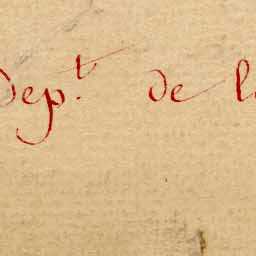 dep.t de l